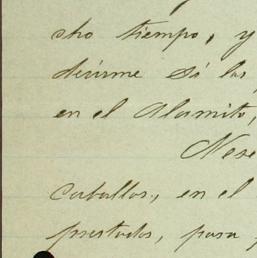 cho tiempo, y
decirme si las
en el Alamito,
Nese
caballos, en el
prestados, para